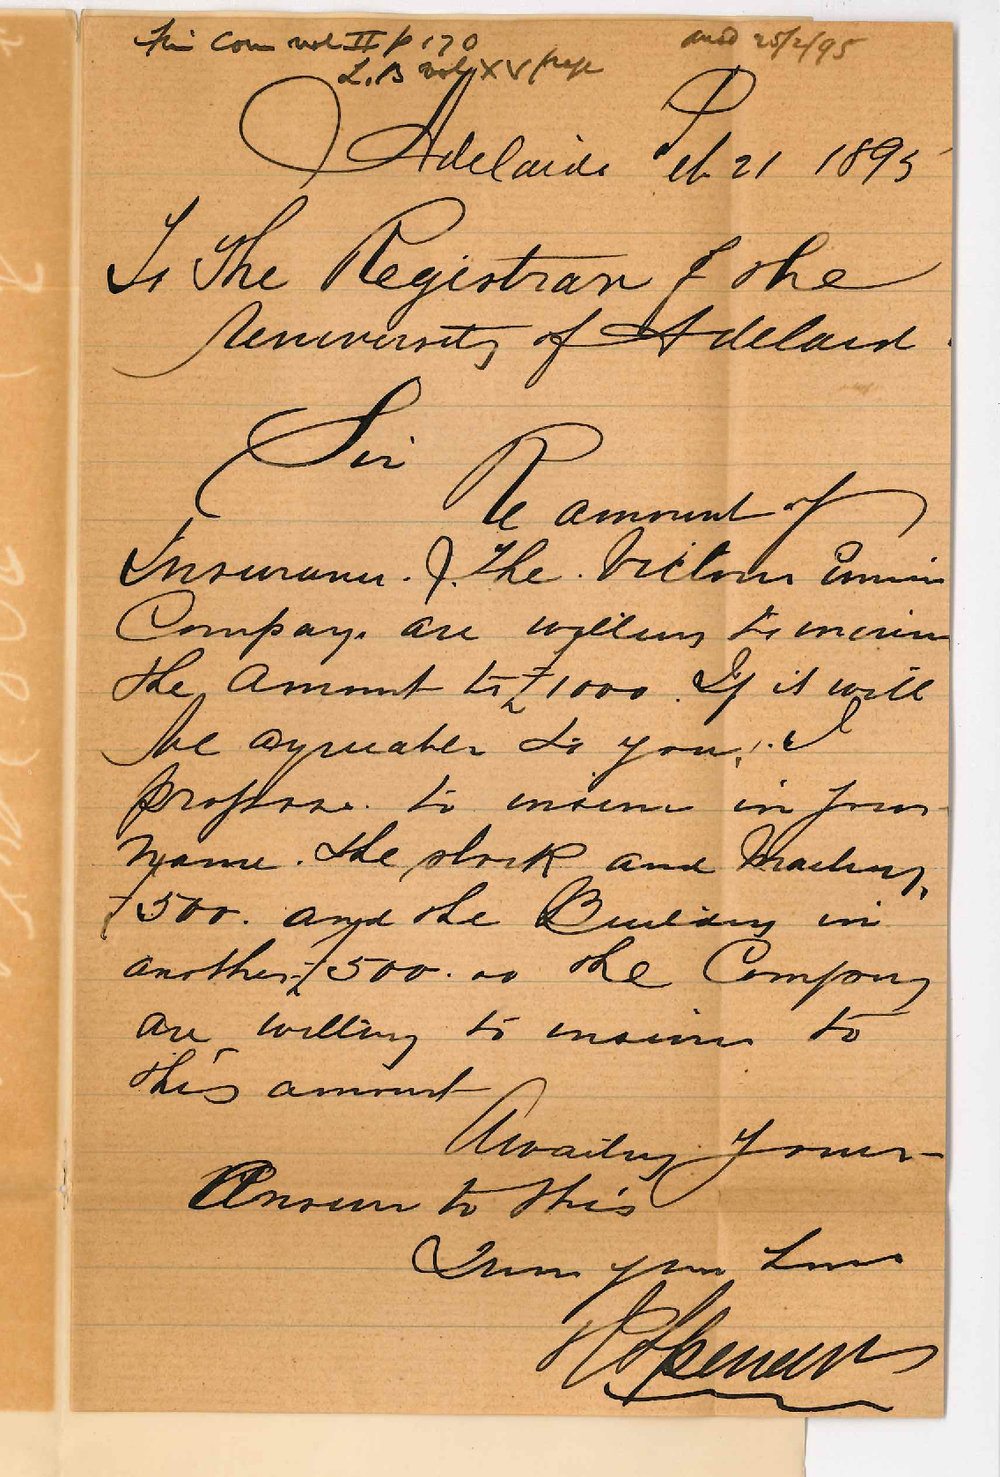 Fin Com vol II p 170
ansd 25/2/95
L.B vol XV page
Adelaide Feb 21 1895
To The Registrar of the
University of Adelaide
Sir
Re amount of
Insurance. The Victoria
Company. are willing to
the amount to £1000. If it will
be agreeable to you, I
propose. to insure in your
name. the stock and
£500. and the Building in
another £500. as the Company
are willing to insure to
this amount
Awaiting Your
Answer to this